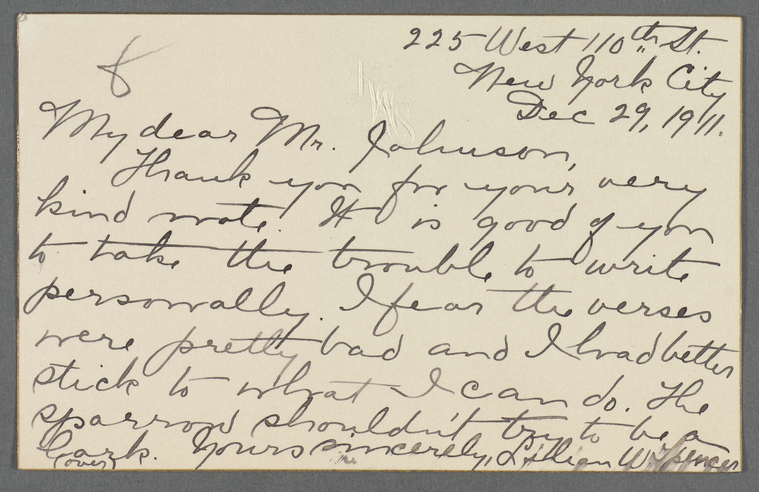 8
225 West 110th St.
New York City
Dec 29, 1911.
LWS
My dear Mr. Johnson,
Thank you for your very
kind note. It is good of you
to take the trouble to write
personally. I fear the verses
were pretty bad and I had better
stick to what I can do. The
sparrow shouldn't try to be a
lark. Yours sincerely, Lillian W. Spencer
(over)